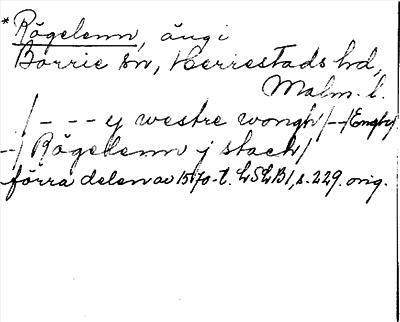 *Rögelenn, äng i
Borrie sn, Herrestads hd,
Malm. l.
/ - - - ej westre wongh /--/Enghz
--/ Rögelenn j stack /
förra delen av 1570-t. LSLB1, s. 229. orig.